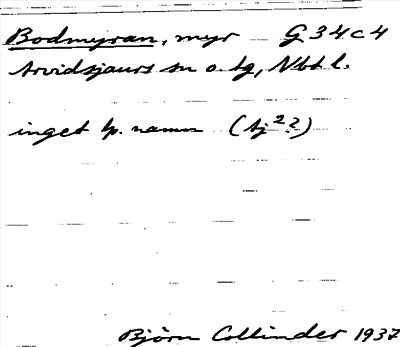 Bodmyran, myr G34c4
Arvidsjaurs sn o. tg, Nbt l.
inget lp. namn (Aj 2?)
Björn Collinder 1937